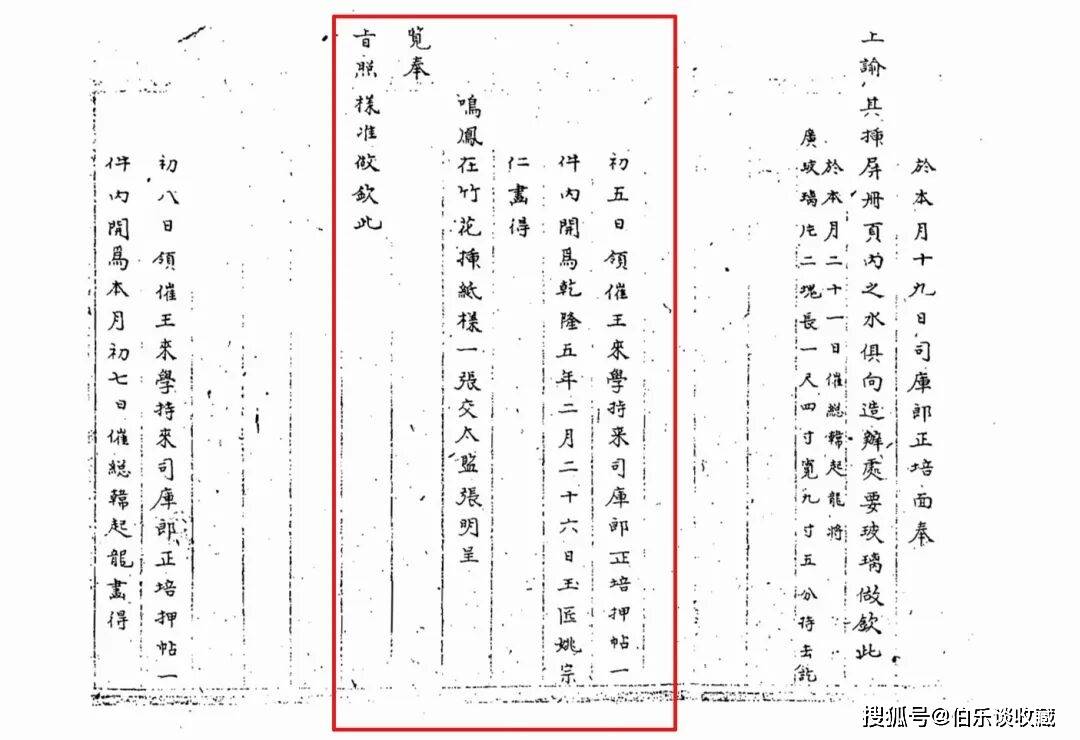 於本月十九日司庫郎正培面奉
上諭其揷屏冊頁內之水俱向造辦處要玻璃做欽此
於本月二十一日催總韓起龍將
廣玻璃片二塊長一尺四寸寬九寸五分持去訖
初五日領催王來學持來司庫郎正培押帖一
件內開爲乾隆五年二月二十六日玉匠姚宗
仁畫得
鳴鳳在竹花揷紙樣一張交太監張明呈
覽奉
旨照樣准做欽此
初八日領催王來學持來司庫郎正培押帖一
件內開爲本月初七日催總韓起龍畫得
搜狐号@伯乐谈收藏